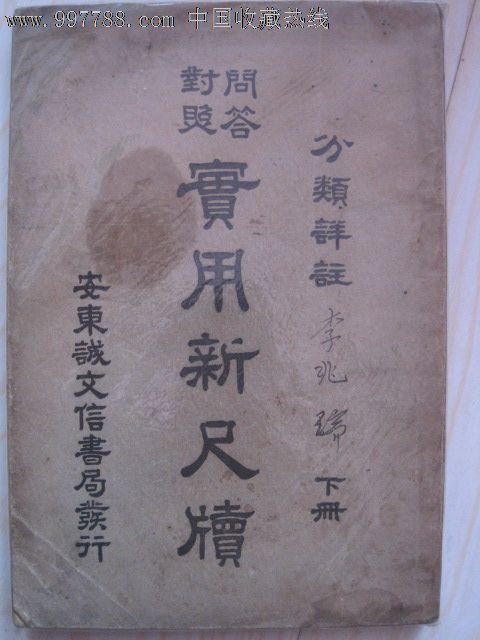 www.997788.com 中国收藏热线
分類詳註 李兆瑞 下冊
問答
對照
實用新尺牘
安東誠文信書局發行